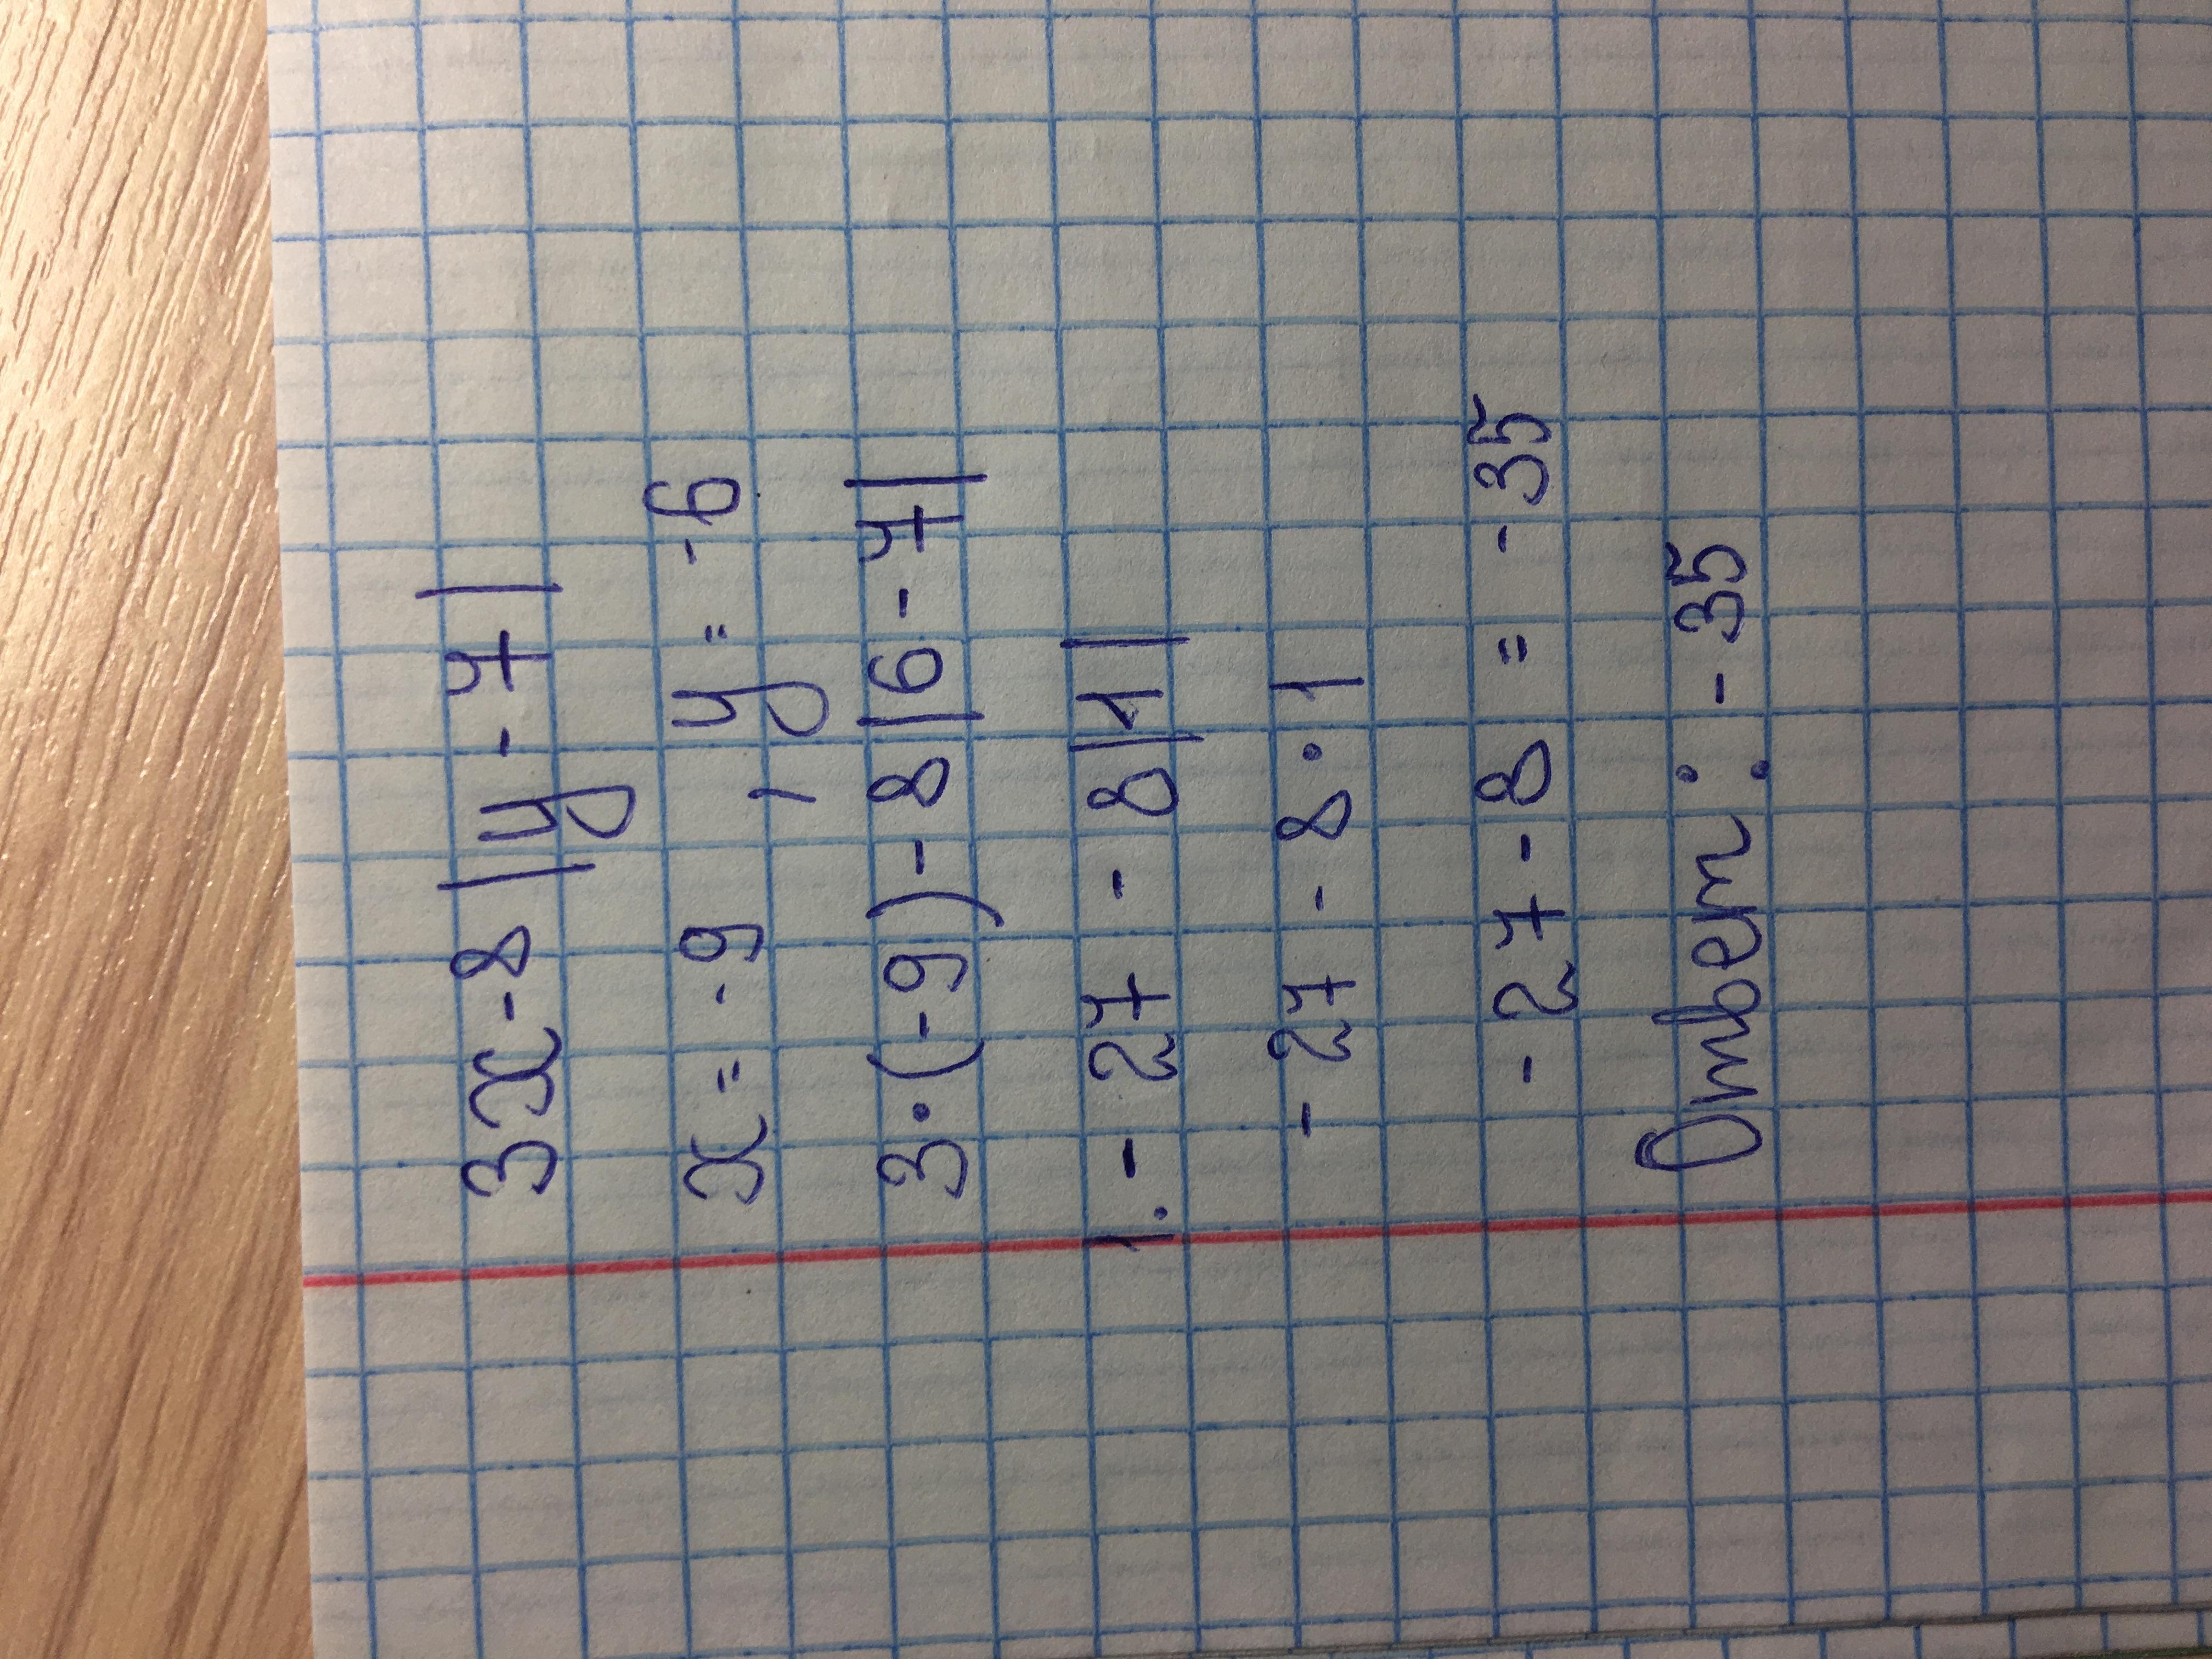 3x-8|y-7|
x=-9, y=-6
3·(-9)-8|6-7|
1.-27-8|1|
-27-8·1
-27-8=-35
Ответ: -35